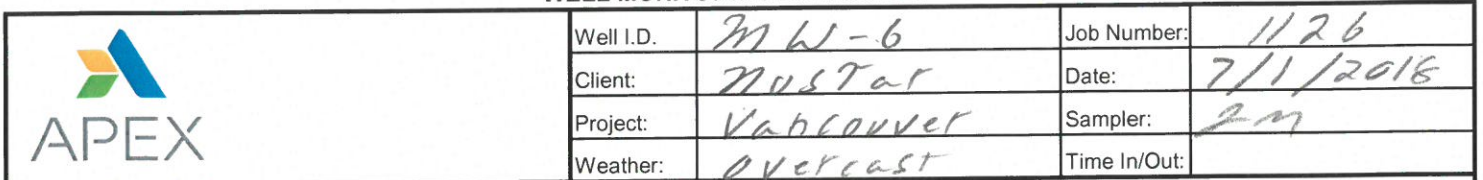 APEX
Well I.D. MW-6 Job Number: 1126
Client: NuStar Date: 7/1/2018
Project: Vancouver Sampler:
Weather: Overcast Time In/Out: